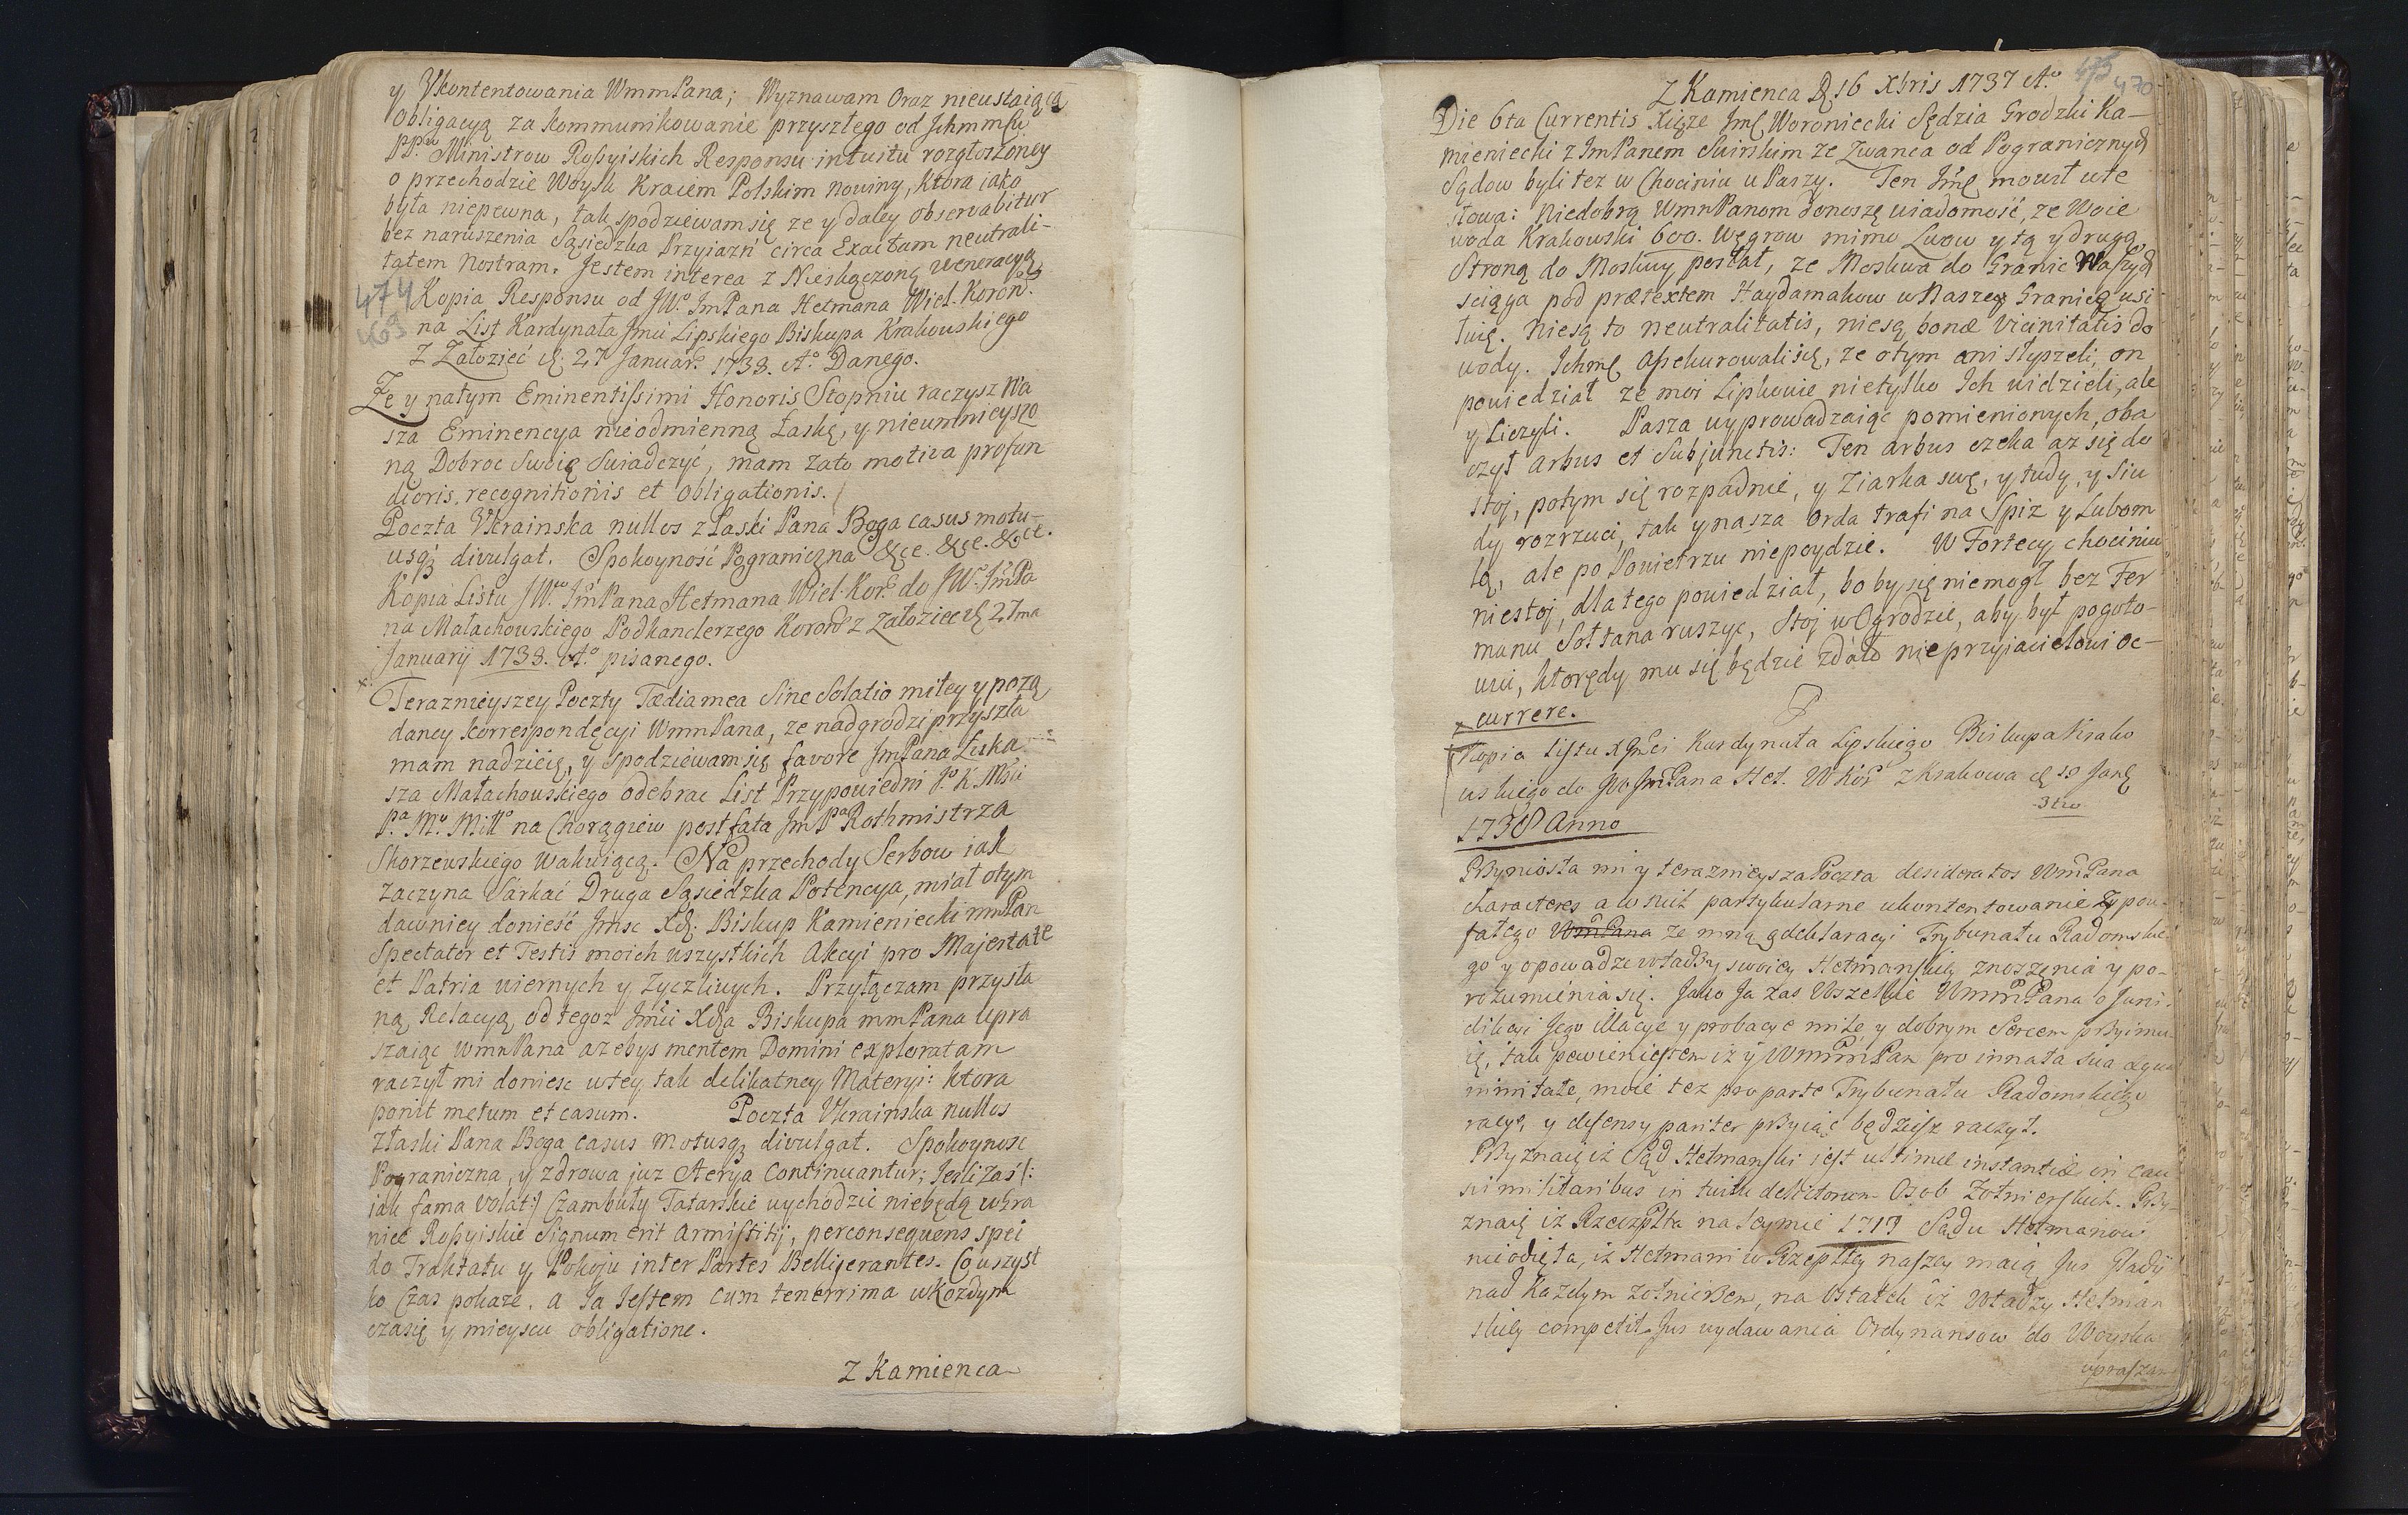 y Ukontentowania WmmPana; Wyznawam Oraz nieustaiącą
Obligacyą za kommunikowanie przyszłego od Ichmm
PPw Ministrow Rossyiskich Responsu intuitu rozgłoszoney
o przechodzie Woysk Kraiem Polskim nowiny, ktora iako
była niepewna, tak spodziewam się ze y daley observabitur
bez naruszenia Sąsiedzka Przyiazń circa Exactam neutrali-
tatem Nostram. Jestem interea z Nieskączoną weneracyą
474
469
Kopia Responsu od JWo ImPana Hetmana Wiel. Koron.
na List Kardynała Jmci Lipskiego Biskupa Krakowskiego
Z Załoziec d. 27 Januar. 1738. Ao Danego.
Ze y natym Eminentissimi Honoris Stopniu raczysz Wa
sza Eminencya nieodmienną Łaskę, y nieumnieyszo
ną Dobroc Swoię Swiadczyć, mam zato motiva profun
dioris recognitionis et obligationis.
Poczta Ukrainska nullos z Łaski Pana Boga casus motu-
usq divulgat. Spokoyność Pograniczna &ce. &ce. &ce.
Kopia Listu JWo ImPana Hetmana Wiel. Kor. do JWo ImPa
na Małachowskiego Podkanclerzego Koron z Załoziec d 27ma
Januarij 1738. Ao pisanego.
x. Teraznieyszey Poczty Tædia mea Sine Solatio miłey y pozą
daney korrespondęcyi WmmPana, ze nadgrodzi przyszła
mam nadzieię, y Spodziewam się favore ImPana Łuka
sza Małachowskiego odebrac List Przypowiedni Jo K Mści
Pa Mo Miło na Chorągiew post fata Im Pa Rothmistrza
Skorzewskiego wakuiącą. Na przechody Serbow iak
zaczyna Sarkać Druga Sąsiedzka Potencya, miał otym
dawniey donieść Jmsc Xdz. Biskup Kamieniecki mmPan
Spectator et Testis moich wszystkich Akcyi pro Majestate
et Patria wiernych y Zyczliwych. Przyłączam przysła
ną Relacyą od tegoz Jmci Xdza Biskupa mmPana upra
szaiąc WmmPana azebys mentem Domini exploratam
raczył mi doniesc w tey tak delikatney Materyi: ktora
ponit metum et casum. Poczta Ukrainska nullos
z łaski Pana Boga casus motusq divulgat. Spokoynosc
Pograniczna, y zdrowa juz Aerya continuantur; Jesli Zaś (:
iak fama volat:) Czambuły Tatarskie wychodzic niebędą w Gra
nice Rossyiskie Signum erit Armistitij, per consequens spei
do Traktatu y Pokoju inter Partes Belligerantes. Co wszyst
ko Czas pokaze. a Ja Jestem cum tenerrima w Kozdym
czasię y mieyscu obligatione.
Z Kamienca
475
470
Z Kamienca D 16 Xbris 1737 Ao
Die 6ta Currentis Xiąze Jmć Woroniecki Sędzia Grodzki Ka-
mieniecki z ImPanem Swirskim ze Zwanca od Pogranicznych
Sądow byli tez w Chocimiu u Paszy. Ten Jmć mowił w te
słowa: Niedobrą WmnPanom donoszę wiadomość, ze Woie
woda Krakowski 600. Węgrow mimo Lwow y tą y drugą
Stroną do Moskwy posłał, ze Moskwa do Granic Waszych
sciąga pod prætextem Haydamakow w Naszey Granicę usi
łuię. Niesą to neutralitatis, niesą bonæ Vicinitatis do
wody. Ichmć Assekurowali się, ze otym ani słyszeli, on
powiedział ze moi Lipkowie nietylko Ich widzieli, ale
y Liczyli. Pasza wyprowadzaiąc pomienionych, oba
czył Arbus et Subjunctis: Ten arbus czeka az się do
stoj, potym się rozpadnie, y Ziarka swę, y tudy, y Siu
dy rozrzuci, tak y nasza Orda trafi na Spiz y Lubom
lą, ale po Powietrzu niepoydzie. W Fortecy chocimiu
niestoj, dla tego powiedział, bo by się niemogł bez Fer
manu Sołtana ruszyc, Stoj w Ogrodzie, aby był pogoto-
wiu, ktorędy mu się będzie zdało nieprzyiacielowi oc-
currere.
Kopia Listu XJmci Kardynała Lipskiego Biskupa Krako
wskiego do JWo JmPana Het. W Kor z Krakowa d 19 Jan
3tio
1738 Anno
Przyniosła mi y teraznieysza Poczta desideratos WmPana
characteres a w nich partykularne ukontentowanie Z pou
fałego WmPana ze mną deklaracyi Trybunału Radomskie
go y opowadze władzy swoiey Hetmanskiey znoszęnia y po-
rozumienia się. Jako Ja zas Wszelkie WmmPana
dikcyi Jego illacye y probacye miłe y dobrym Sercem przyimu
ię, tak pewien iestem iz y WmmmPan pro innata sua æqua
nimitate, moie tez pro parte Trybunału Radomskiego
racye, y defensy pariter przyiąc będziesz raczył.
Przyznaię iz Sąd Hetmanski iest ultimæ instantiæ in cau
sis militaribus in tuitu delictorum Osob Zołnierskich. Przy-
znaię iz Rzeczplta na Seymie 1717 Sądu Hetmanow
nieodięła, iz Hetmani w Rzeplitey naszey maią Jus Gladij
nad Kazdym zołnierzem, na Ostatek iz Władzy Hetman
skiey competit Jus wydawania Ordynansow do Woyska
upraszam